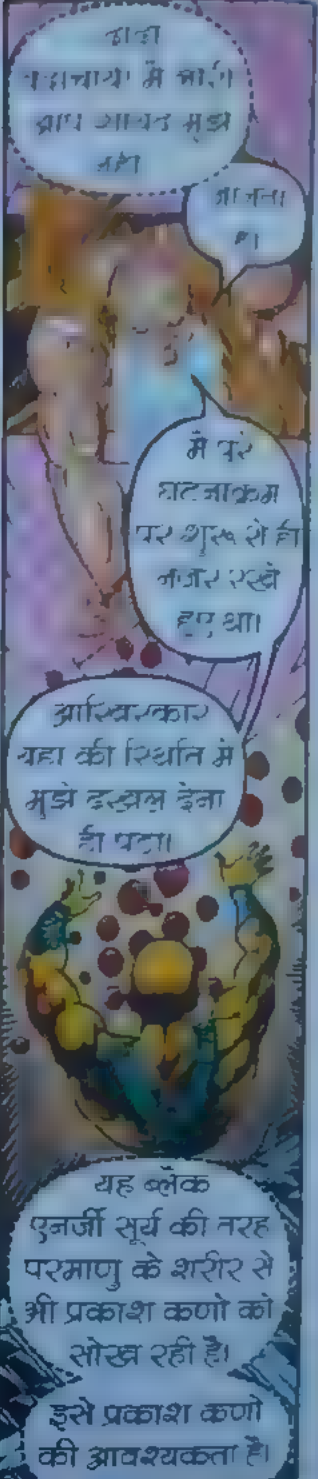 मे जारी
आप शायद मुझे
नही
जानता
मै पूरे
घटनाक्रम
पर शुरू से ही
नजर रखे
हुए था।
आखिरकार
यहा की स्थिति मे
मुझे दखल देना
ही पड़ा।
यह ब्लैक
एनर्जी सूर्य की तरह
परमाणु के शरीर से
भी प्रकाश कणो को
सोख रही है।
इसे प्रकाश कणो
की आवश्यकता है।